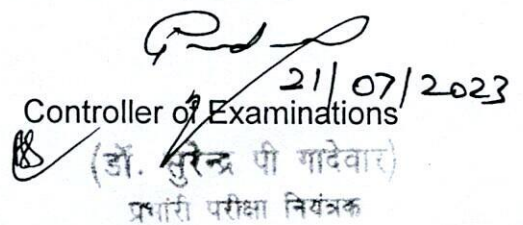 21/07/2023
Controller of Examinations
(डॉ. सुरेन्द्र पी गादेवार)
प्रभारी परीक्षा नियंत्रक